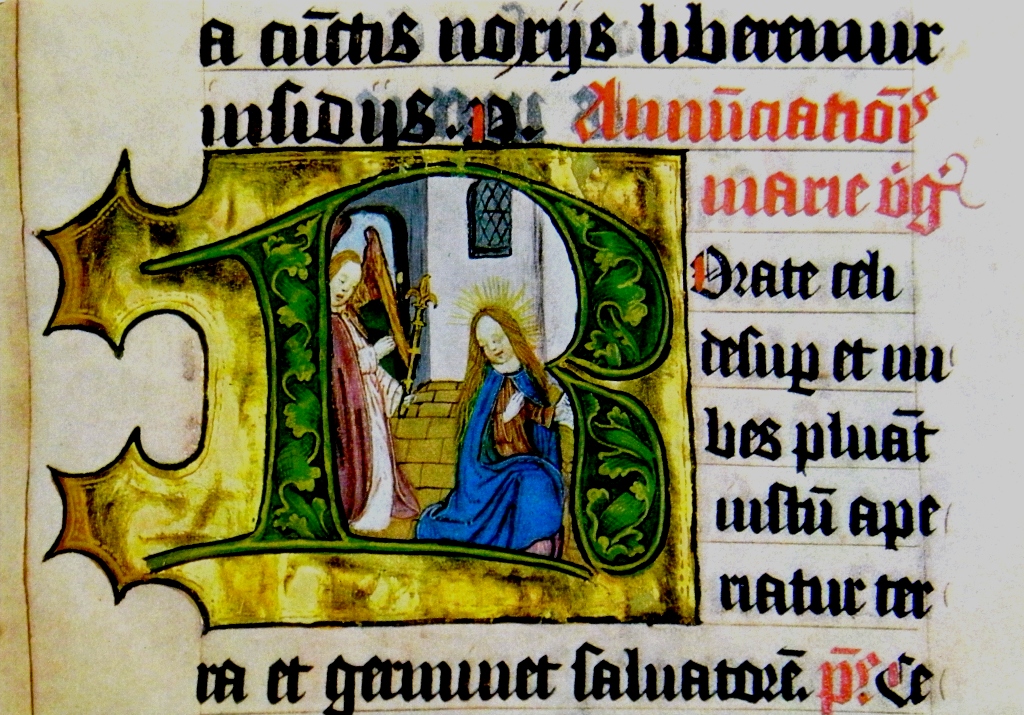 a cūctis noxijs liberemur
insidijs. p. Annūciatiōis
marie v̄g̃
R Orate celi
desup et nu
bes pluāt
iustū ape
riatur ter
ra et germinet saluatorē. p̄s. Ce